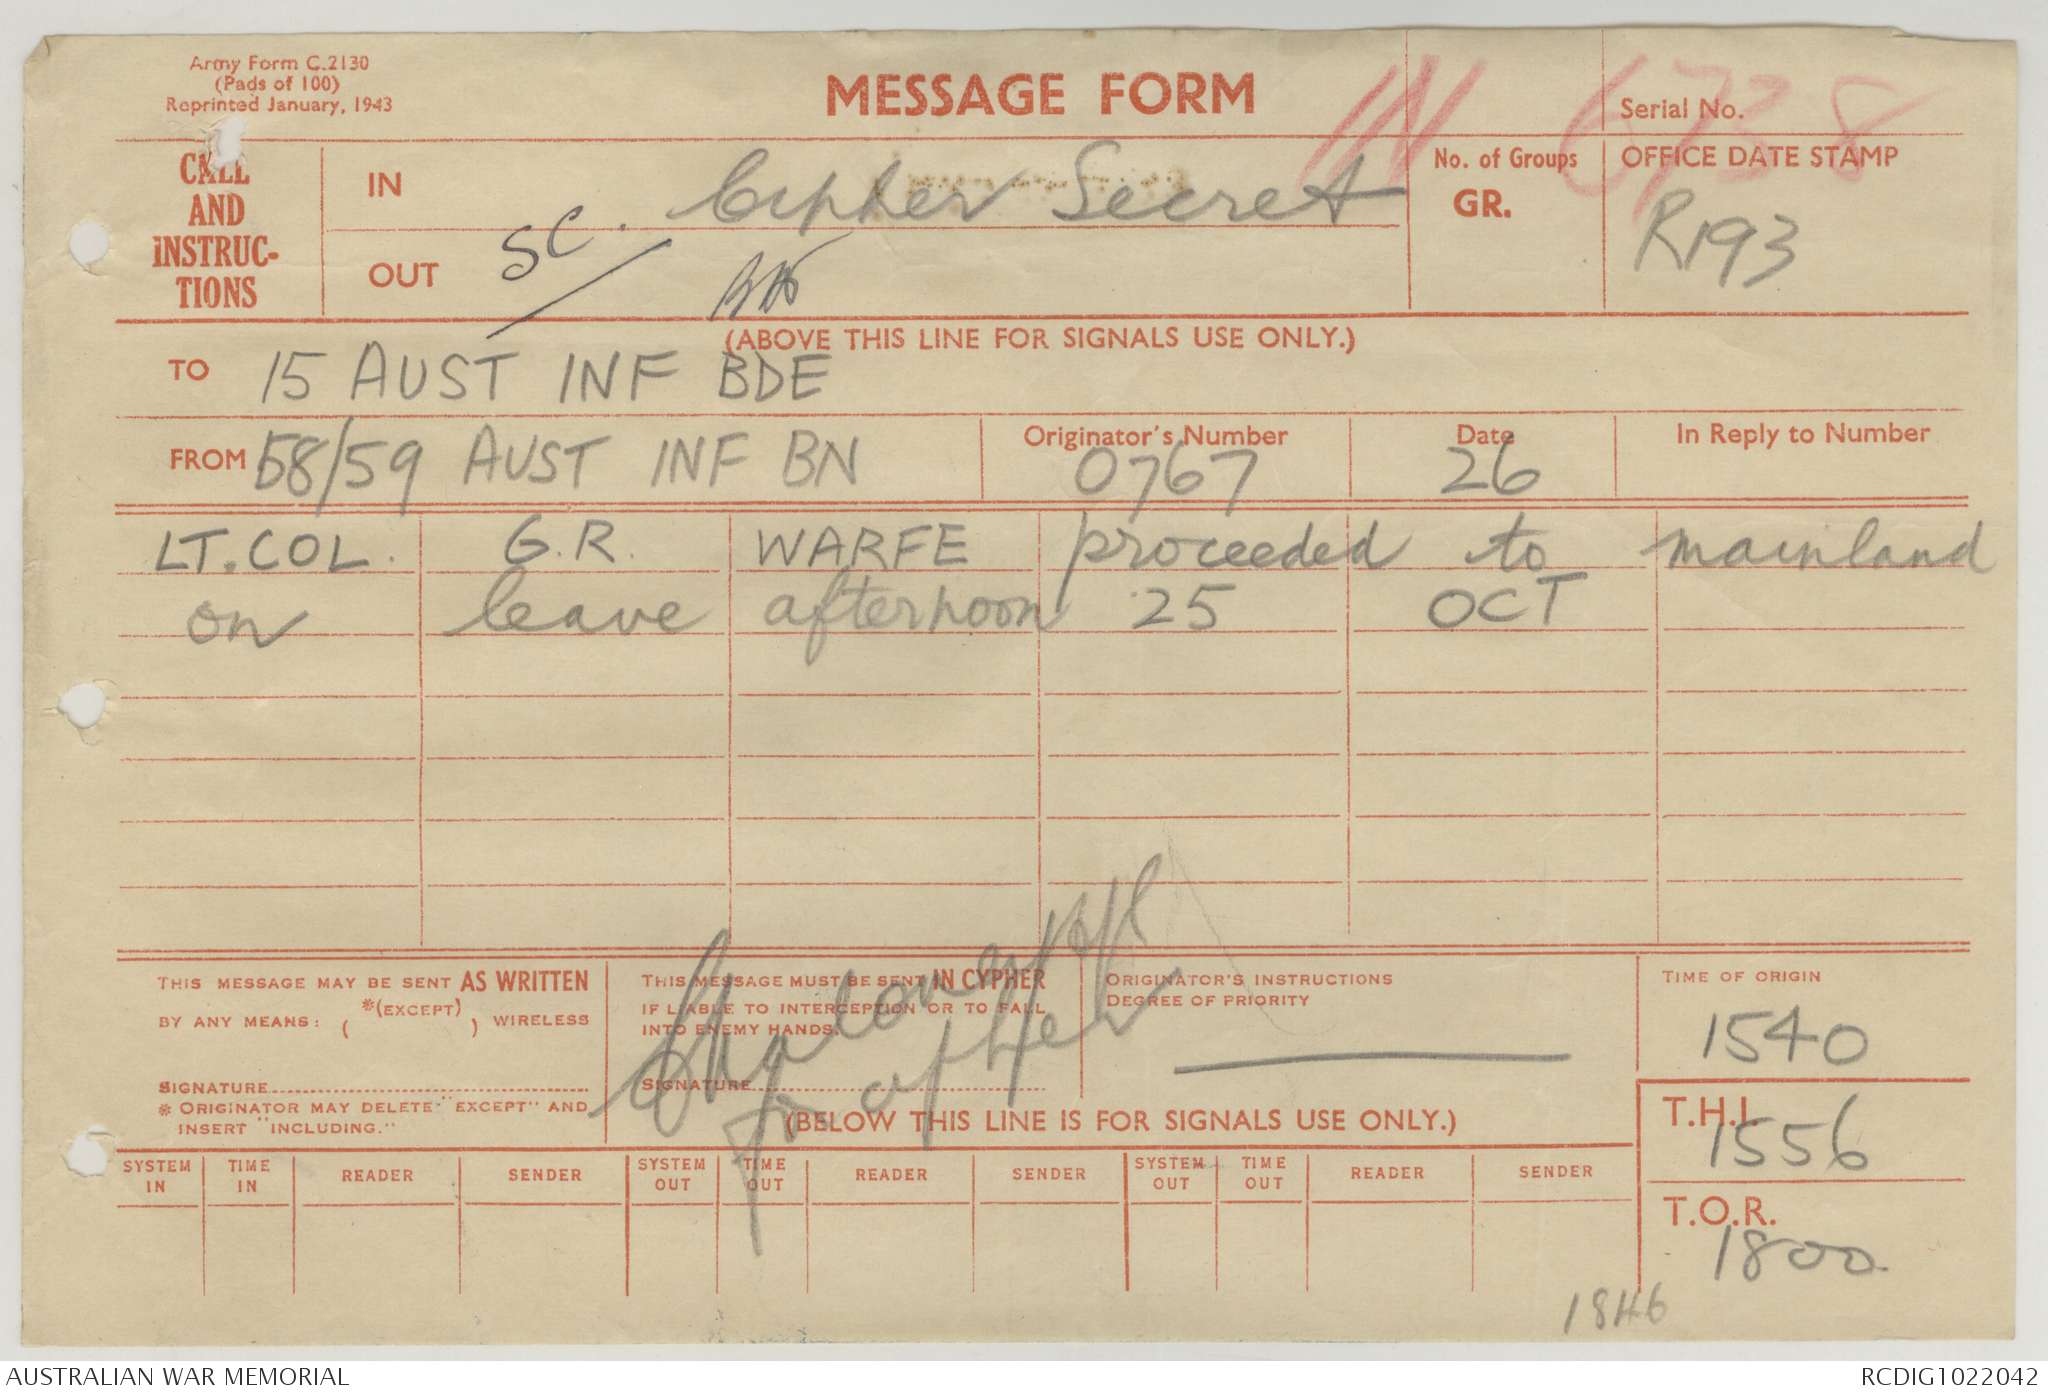 Army Form C.2130
(Pads of 100)
Reprinted January, 1943
MESSAGE FORM
IN 6738
Serial No.
CALL AND INSTRUC-TIONS
IN Cipher Secret
OUT SC.
No. of Groups
GR.
OFFICE DATE STAMP
R193
(ABOVE THIS LINE FOR SIGNALS USE ONLY.)
TO 15 AUST INF BDE
FROM 58/59 AUST INF BN
Originator's Number 0767
Date 26
In Reply to Number
LT. COL. G.R. WARFE proceeded to mainland
on leave afternoon 25 OCT
THIS MESSAGE MAY BE SENT AS WRITTEN
BY ANY MEANS: ( *(EXCEPT) ) WIRELESS
SIGNATURE
* ORIGINATOR MAY DELETE "EXCEPT" AND
INSERT "INCLUDING."
THIS MESSAGE MUST BE SENT IN CYPHER
IF LIABLE TO INTERCEPTION OR TO FALL
INTO ENEMY HANDS.
SIGNATURE
ORIGINATOR'S INSTRUCTIONS
DEGREE OF PRIORITY
TIME OF ORIGIN
1540
T.H.I.
1556
T.O.R.
1800
(BELOW THIS LINE IS FOR SIGNALS USE ONLY.)
SYSTEM IN TIME IN READER SENDER SYSTEM OUT TIME OUT READER SENDER SYSTEM OUT TIME OUT READER SENDER
1846
AUSTRALIAN WAR MEMORIAL
RCDIG1022042